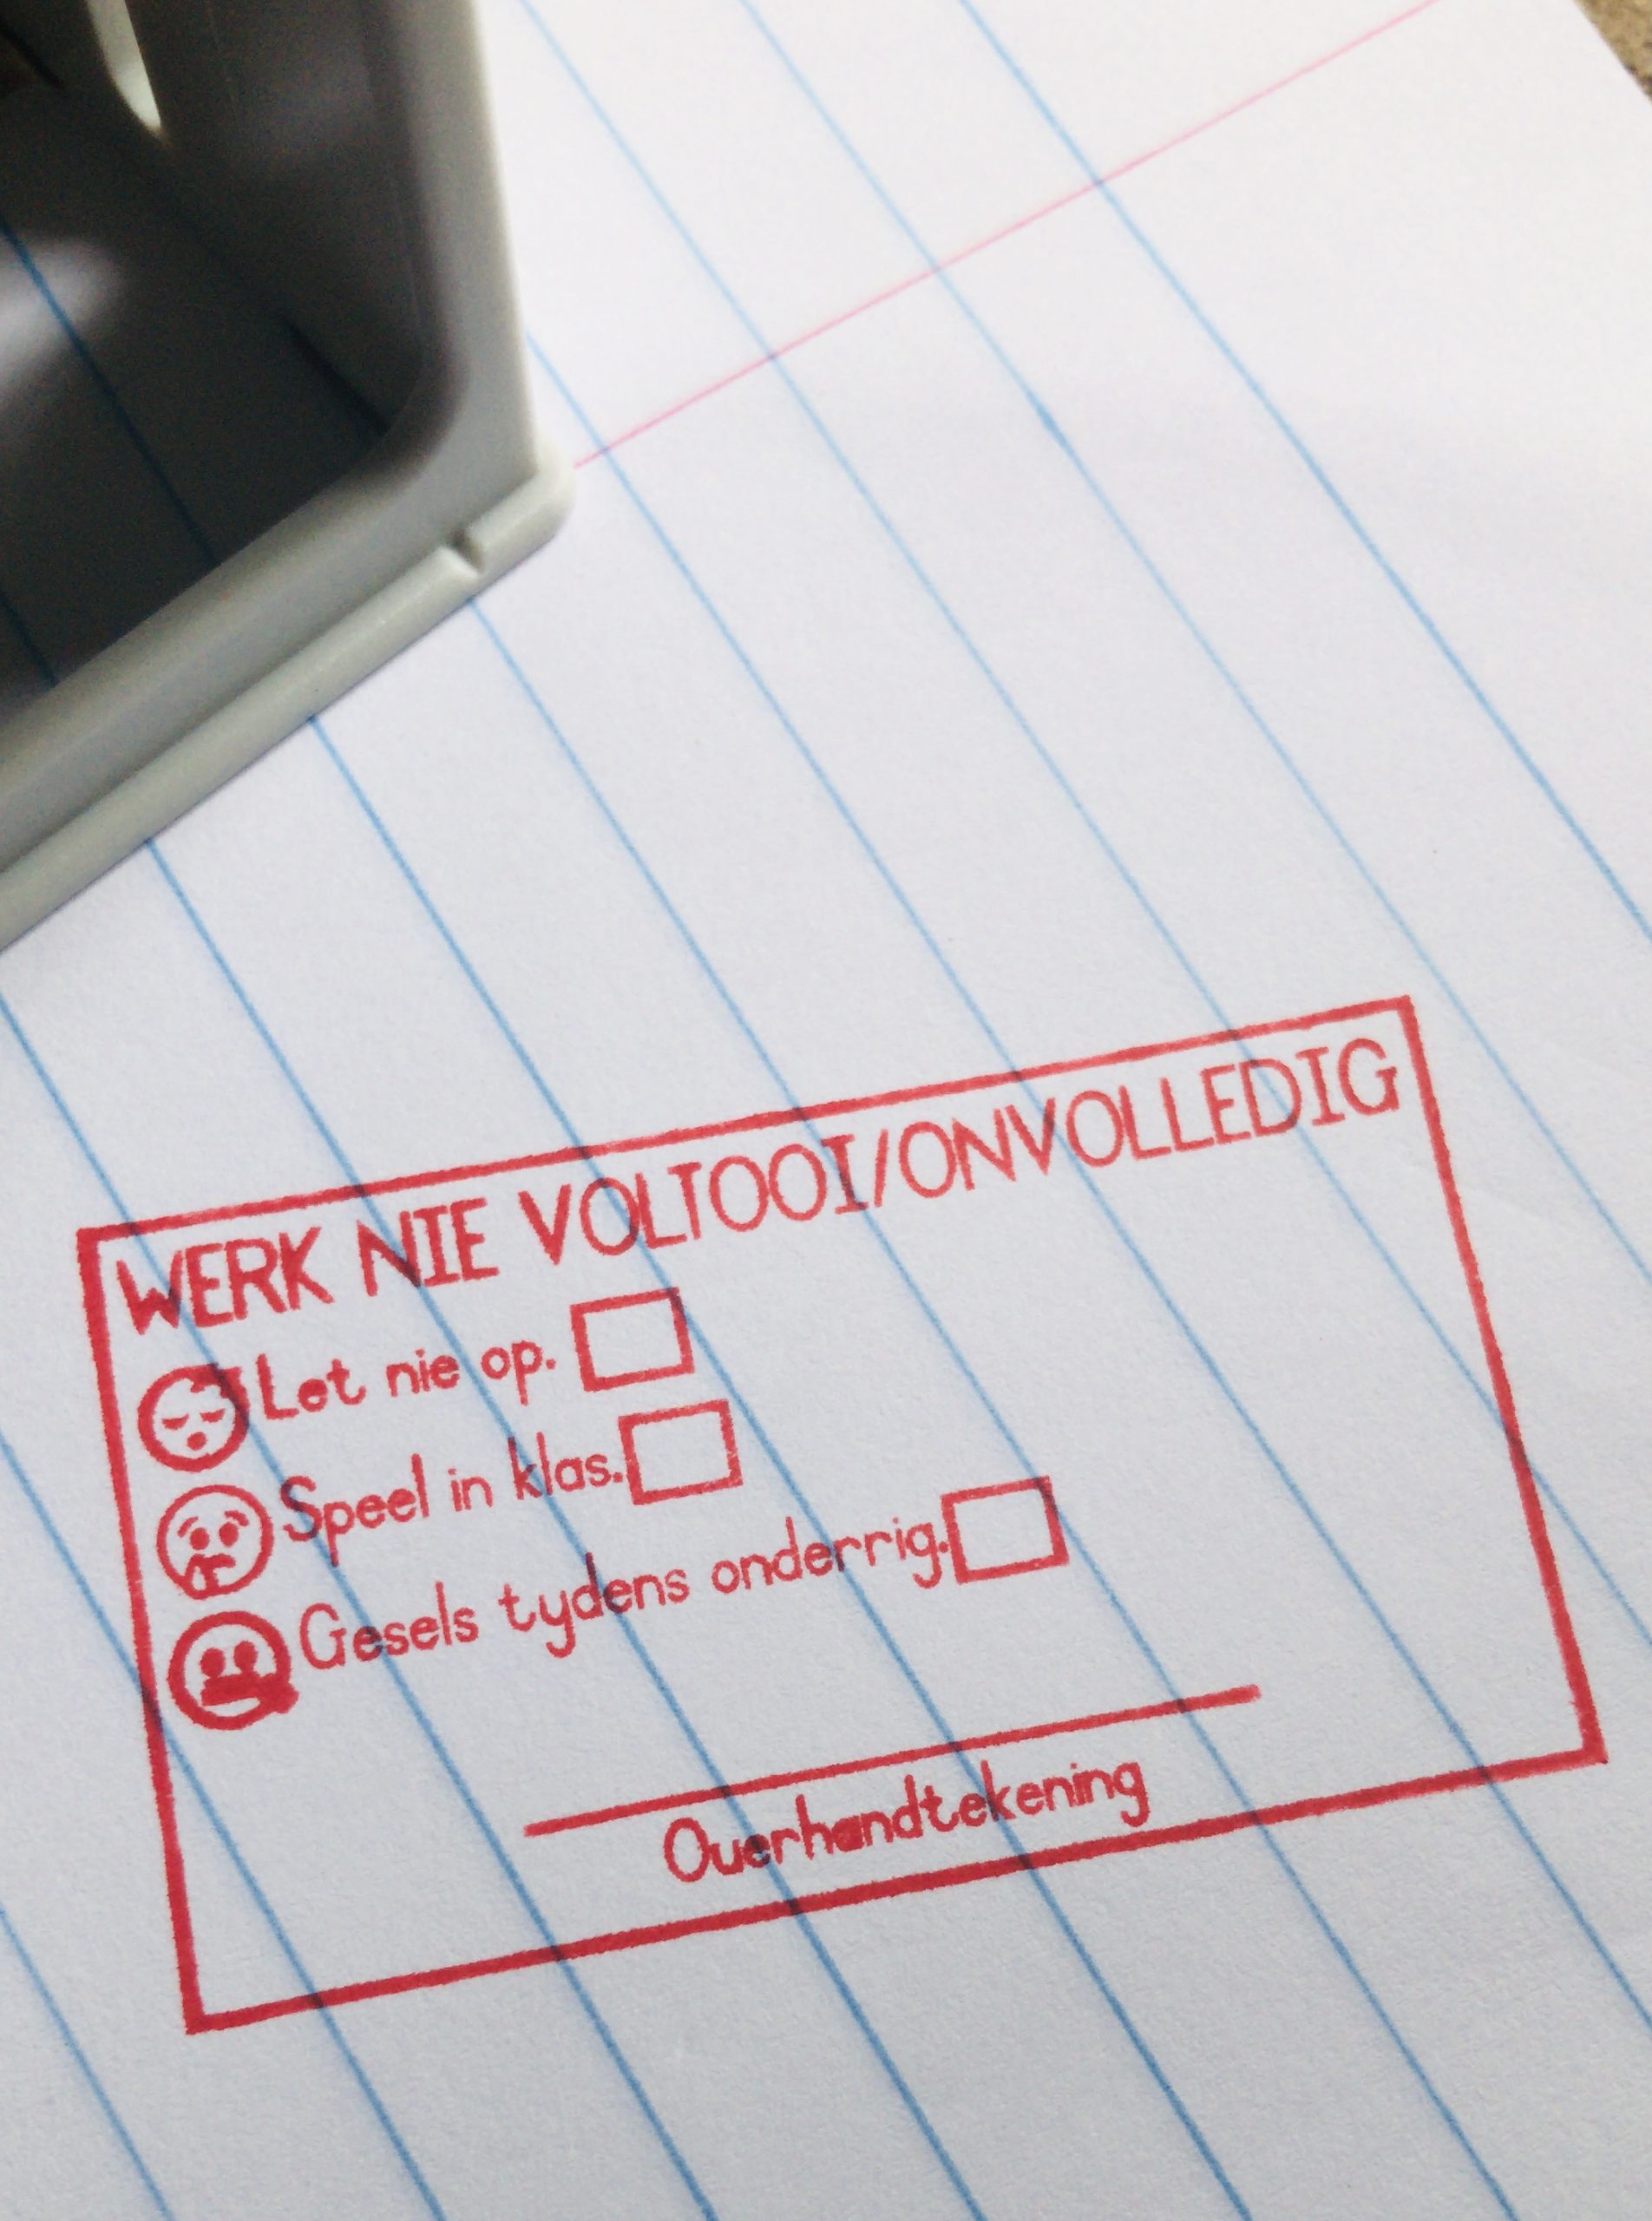 WERK NIE VOLTOOI/ONVOLLEDIG
Let nie op.
Speel in klas.
Gesels tydens onderrig.
Ouerhandtekening